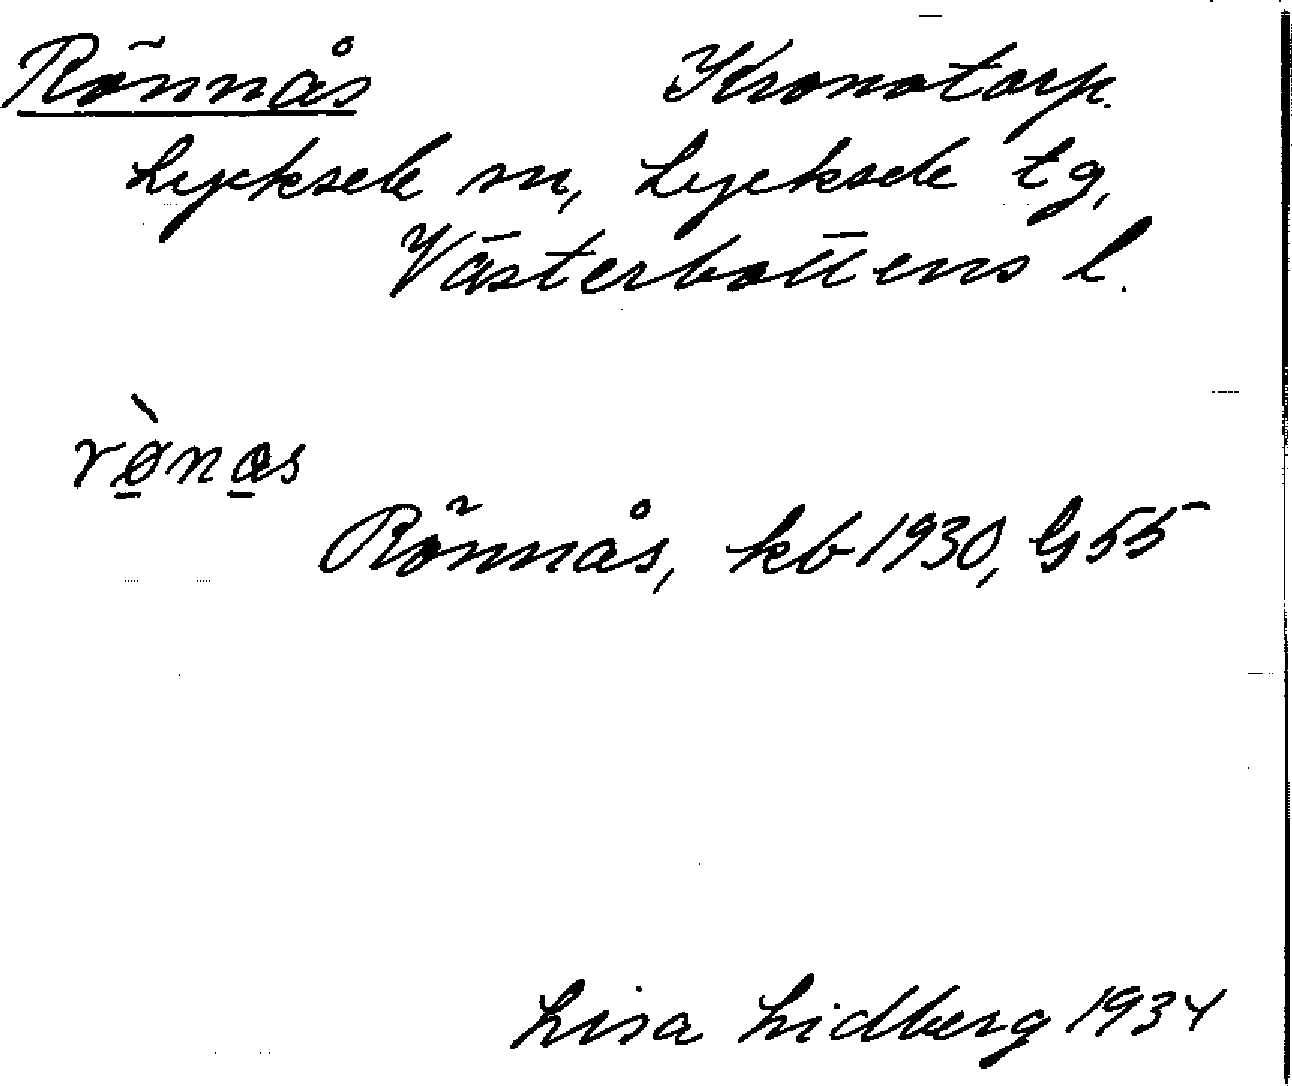 Rönnås Kronotorp.
Lycksele sn, Lycksele tg,
Västerbottens l.
rø̀nas
Rönnås, kb 1930, G 55
Lisa Lidberg 1934